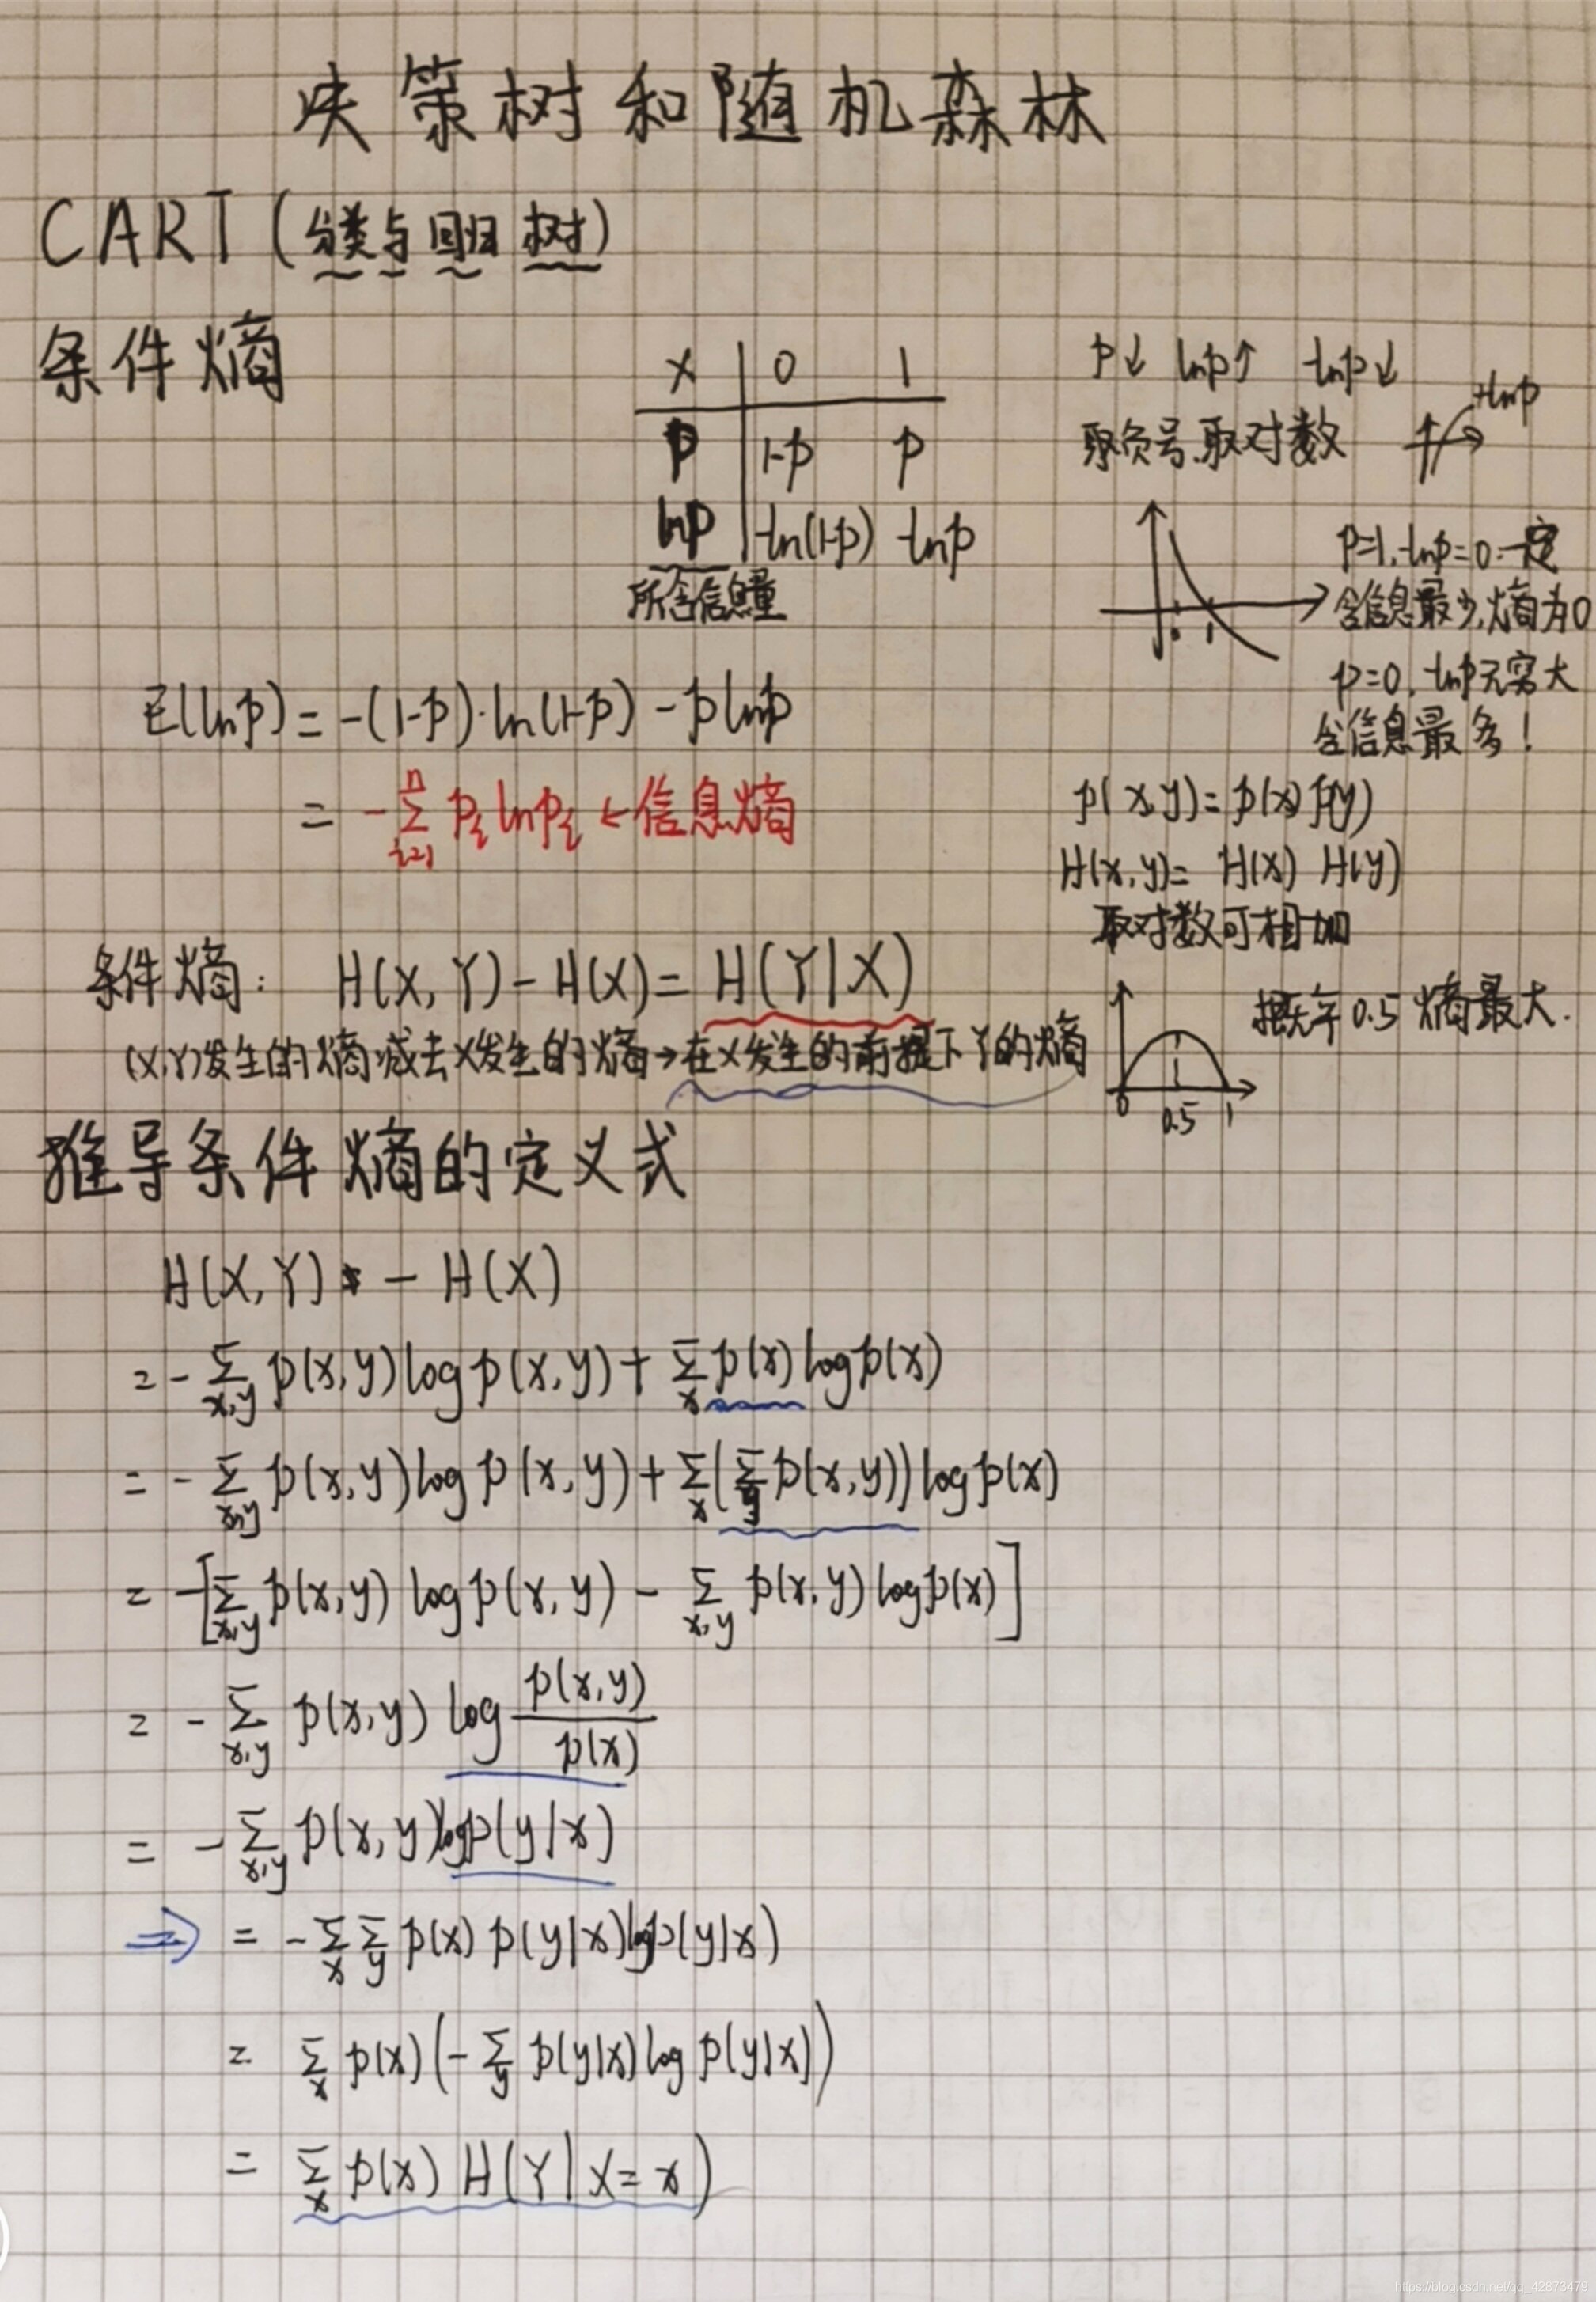 决策树和随机森林
CART (分类与回归树)
条件熵
X 0 1
P 1-p p
lnp -ln(1-p) -lnp
所含信息量
P↓ lnp↑ -lnp↓
取负号.取对数
+lnp
0 1
P=1, -lnp=0 一定
含信息最少,熵为0
p=0, -lnp无穷大
含信息最多!
E(lnp) = -(1-p)·ln(1-p) - plnp
= -∑ᵢ₌₁ⁿ pᵢ lnpᵢ ← 信息熵
p(x,y) = p(x) p(y)
H(x,y) = H(x) H(y)
取对数可相加
条件熵: H(X,Y) - H(X) = H(Y|X)
(X,Y)发生的熵.减去X发生的熵→在X发生的前提下Y的熵
概率0.5 熵最大.
0 0.5 1
推导条件熵的定义式
H(X,Y) - H(X)
= - ∑x,y p(x,y) log p(x,y) + ∑x p(x) log p(x)
= - ∑x,y p(x,y) log p(x,y) + ∑x (∑y p(x,y)) log p(x)
= -[∑x,y p(x,y) log p(x,y) - ∑x,y p(x,y) log p(x)]
= - ∑x,y p(x,y) log p(x,y)/p(x)
= - ∑x,y p(x,y) log p(y|x)
⇒ = - ∑x ∑y p(x) p(y|x) log p(y|x)
= ∑x p(x) (- ∑y p(y|x) log p(y|x))
= ∑x p(x) H(Y|X=x)
https://blog.csdn.net/qq_42873479